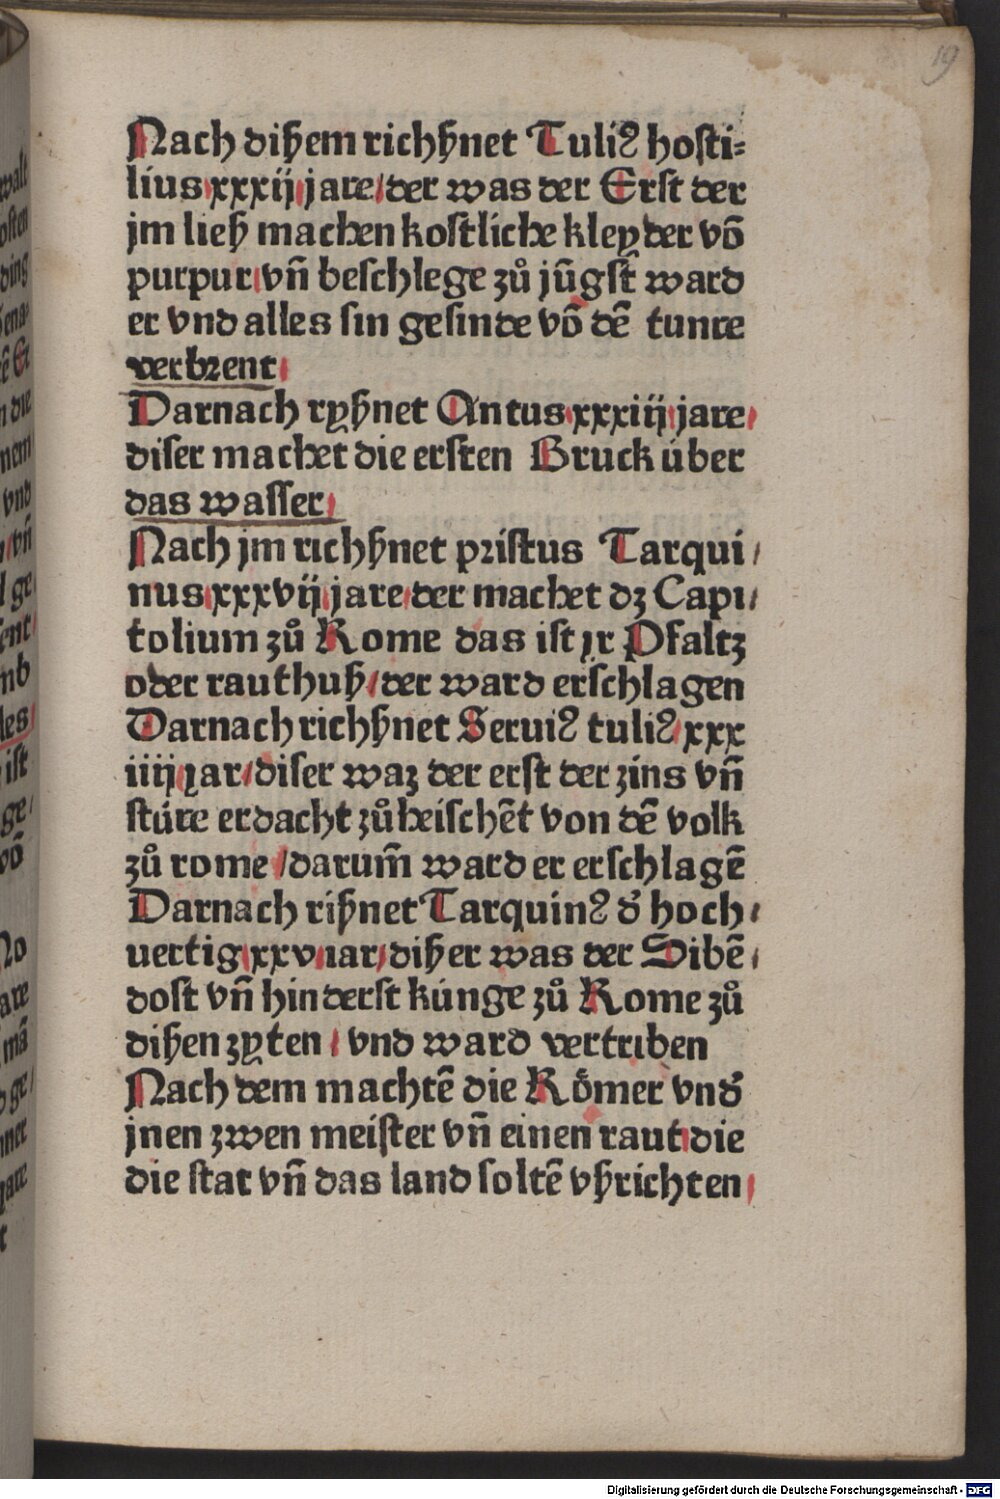 19
Nach dißem richßnet Tuliꝰ hosti⸗
lius xxxij jare/ der was der Erst der
jm ließ machen kostliche kleyder võ
purpur/ vñ beschlege zů jũgst ward
er vnd alles sin gesinde võ dẽ tunre
verbrent/
Darnach ryßnet Antus xxxiij jare/
diser machet die ersten Bruck über
das wasser/
Nach jm richßnet pristus Tarqui/
nus xxxvij jare/ der machet dz Capi/
tolium zů Rome das ist jr Pfaltz
oder rauthuß/ der ward erschlagen
Darnach richßnet Seruiꝰ tuliꝰ/ xxx
iiij jar/ diser waz der erst der zins vñ
stüre erdacht zůheischẽt von dẽ volk
zů rome/ darum̃ ward er erschlagẽ
Darnach rißnet Tarquinꝰ d' hoch/
uertig xxv iar/ dißer was der Sibẽ/
dost vñ hinderst künge zů Rome zů
dißen zyten/ vnd ward vertriben
Nach dem machtẽ die Römer vnd'
jnen zwen meister vñ einen raut/ die
die stat vñ das land soltẽ vßrichten/
Digitalisierung gefördert durch die Deutsche Forschungsgemeinschaft - DFG